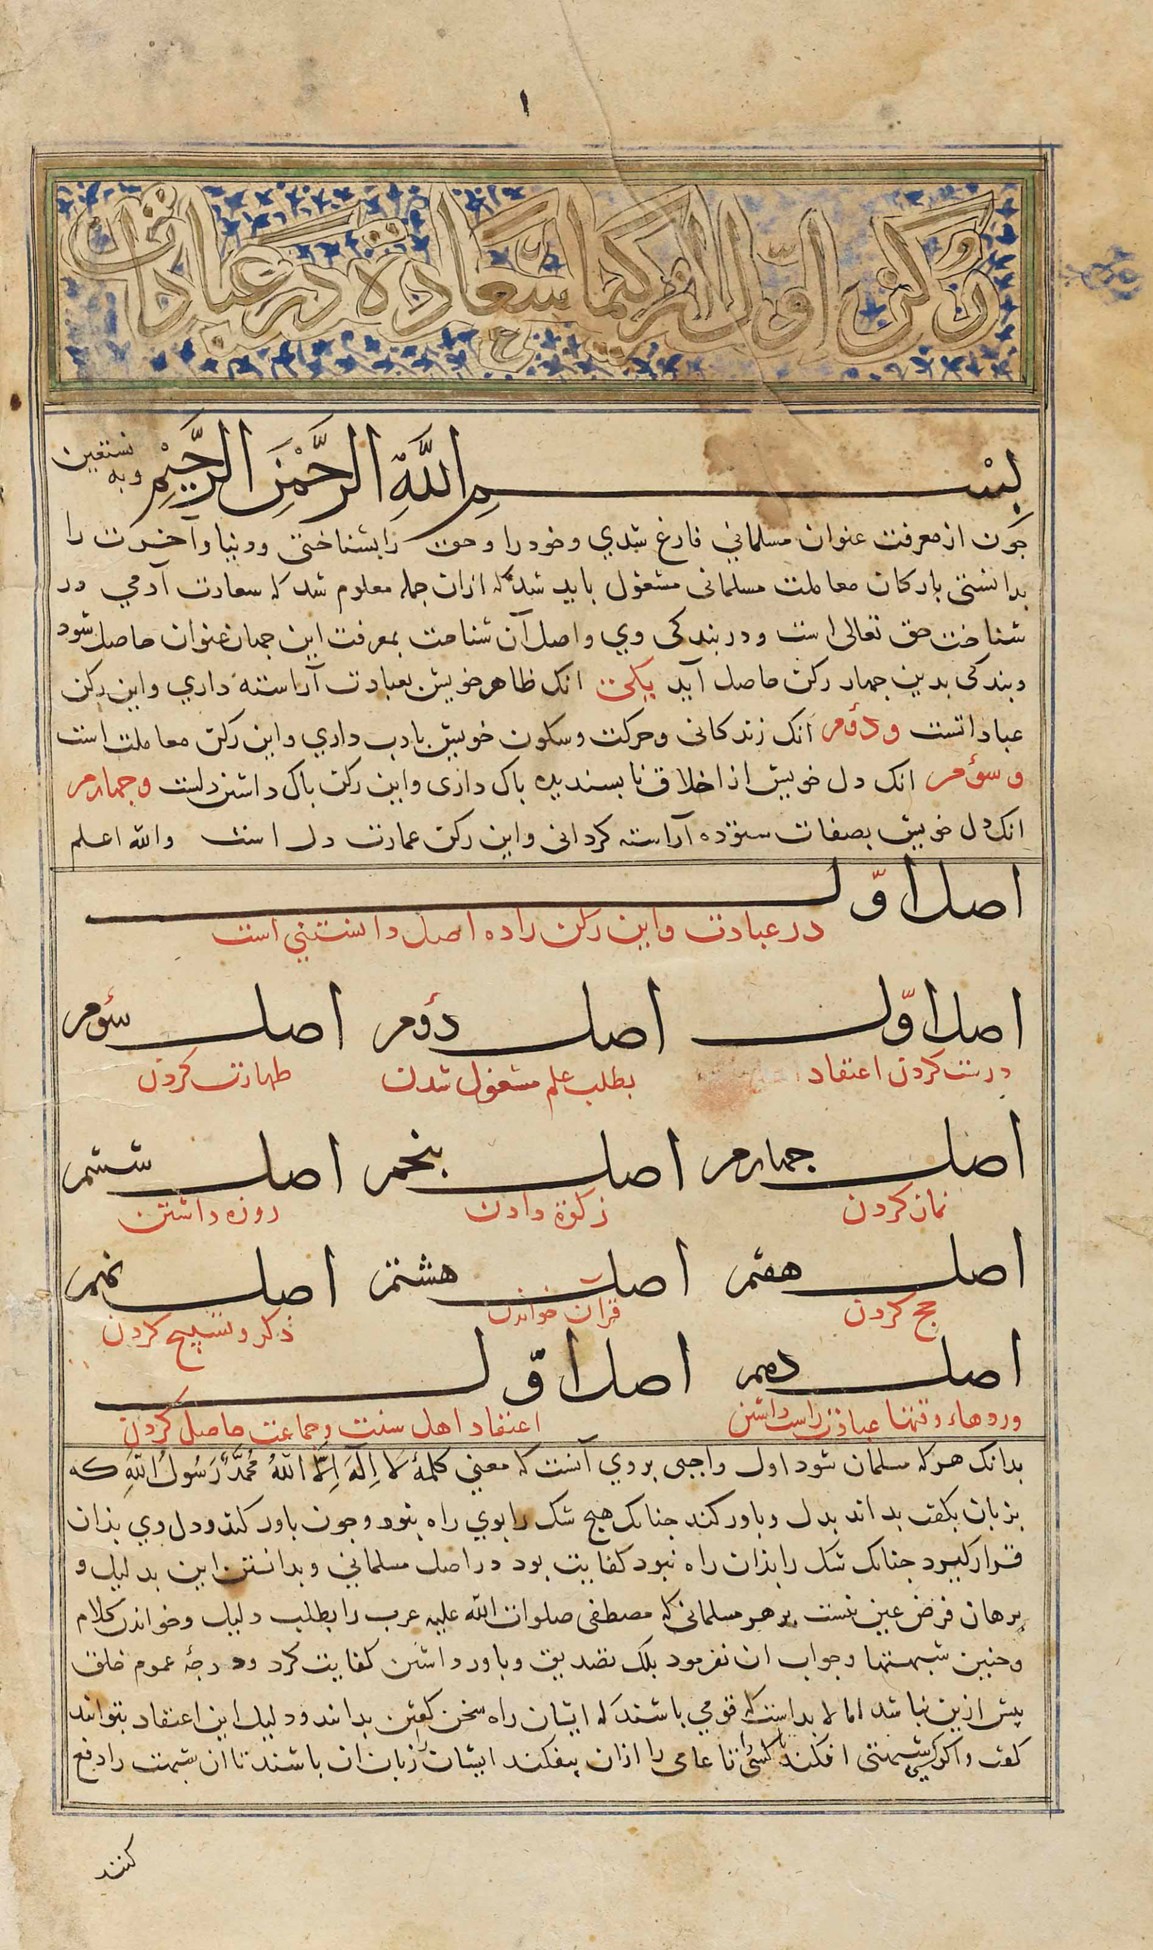 ١
رکن اول از کیمیا سعادة در عبادات
بسم الله الرحمن الرحیم وبه نستعین
جون از معرفت عنوان مسلمانی فارغ شدي وخود را وحق را بشناختي ودنیا وآخرت را
بدانستی بارکان معاملت مسلمانی مشغول باید شد که ازان جمله معلوم شد که سعادت آدمي در
شناخت حق تعالی است ودر بندکی وي واصل آن شناخت بمعرفت این جهار عنوان حاصل شود
وبندکی بدین جهار رکن حاصل آید یکی انک ظاهر خویش بعبادت آراسته داري واین رکن
عباداتست ودؤم انک زندکانی وحرکت وسکون خویش بادب داري واین رکن معاملت است
وسؤم انک دل خویش از اخلاق نابسندیده باک داری واین رکن باک داشتن دلست وجهارم
انک دل خویش بصفات ستوده آراسته کردانی واین رکن عمارت دل است والله اعلم
اصل اوّل
در عبادت واین رکن را ده اصل دانستني است
اصل اوّل اصل دؤم اصل سؤم
درست کردن اعتقاد بطلب علم مشغول شدن طهارت کردن
اصل جهارم اصل بنجم اصل ششم
نماز کردن زکوة دادن روزه داشتن
اصل هفتم اصل هشتم اصل نهم
حج کردن قرآن خواندن ذکر وتسبیح کردن
اصل دهم اصل اوّل
وردهاء وقتها عبادت راست داشتن اعتقاد اهل سنت وجماعت حاصل کردن
بدانک هر که مسلمان شود اول واجبی بروي آنست که معني کلمهٔ لا اِلهَ اِلَّا اللهُ مُحَمَّدٌ رَسُولُ اللهِ که
بزبان بکفت بداند بدل وباور کند جنانک هیچ شک را بوي راه نبود وجون باور کند ودل وي بذان
قرار کیرد جنانک شک را بذان راه نبود کفایت بود در اصل مسلماني وبدانستن این بدلیل و
برهان فرض عین نیست بر هر مسلمانی که مصطفی صلوات الله علیه عرب را بطلب دلیل وخواندن کلام
وجنین شبهتها وجواب ان نفرمود بلک تصدیق وباور داشتن کفایت کرد ودرجهٔ عموم خلق
بیش ازین نباشد اما لا بد است که قومي باشند که ایشان راه سخن کفتن بدانند ودلیل این اعتقاد بتوانند
کفت واکر کسی شبهتی افکند تا عامی را ازان بیفکند ایشان زبان ان باشند تا ان شبهت را دفع
کنند